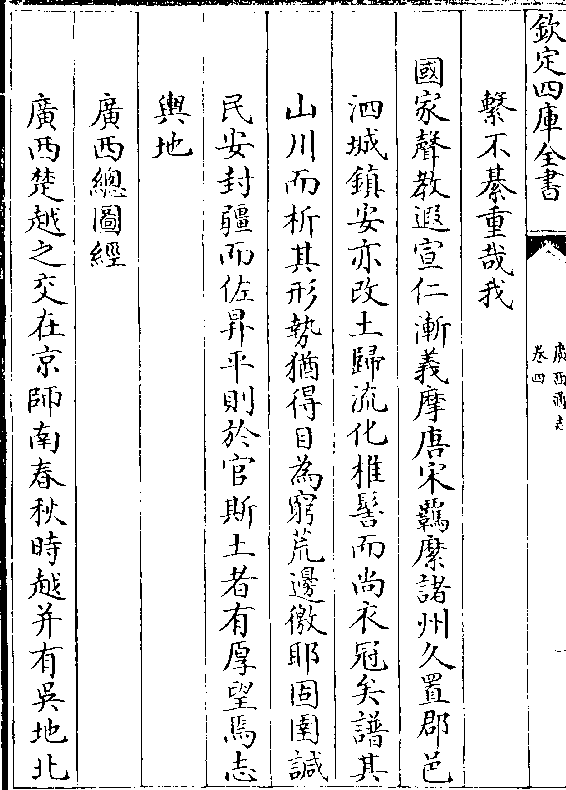 欽定四庫全書
廣西通志
卷四
繫不綦重哉我
國家聲教遐宣仁漸義摩唐宋羈縻諸州久置郡邑
泗城鎮安亦改土歸流化椎髻而尚衣冠矣譜其
山川而析其形勢猶得目為窮荒邊徼耶固圉諴
民安封疆而佐昇平則於官斯土者有厚望焉志
輿地
廣西總圖經
廣西楚越之交在京師南春秋時越并有吳地北